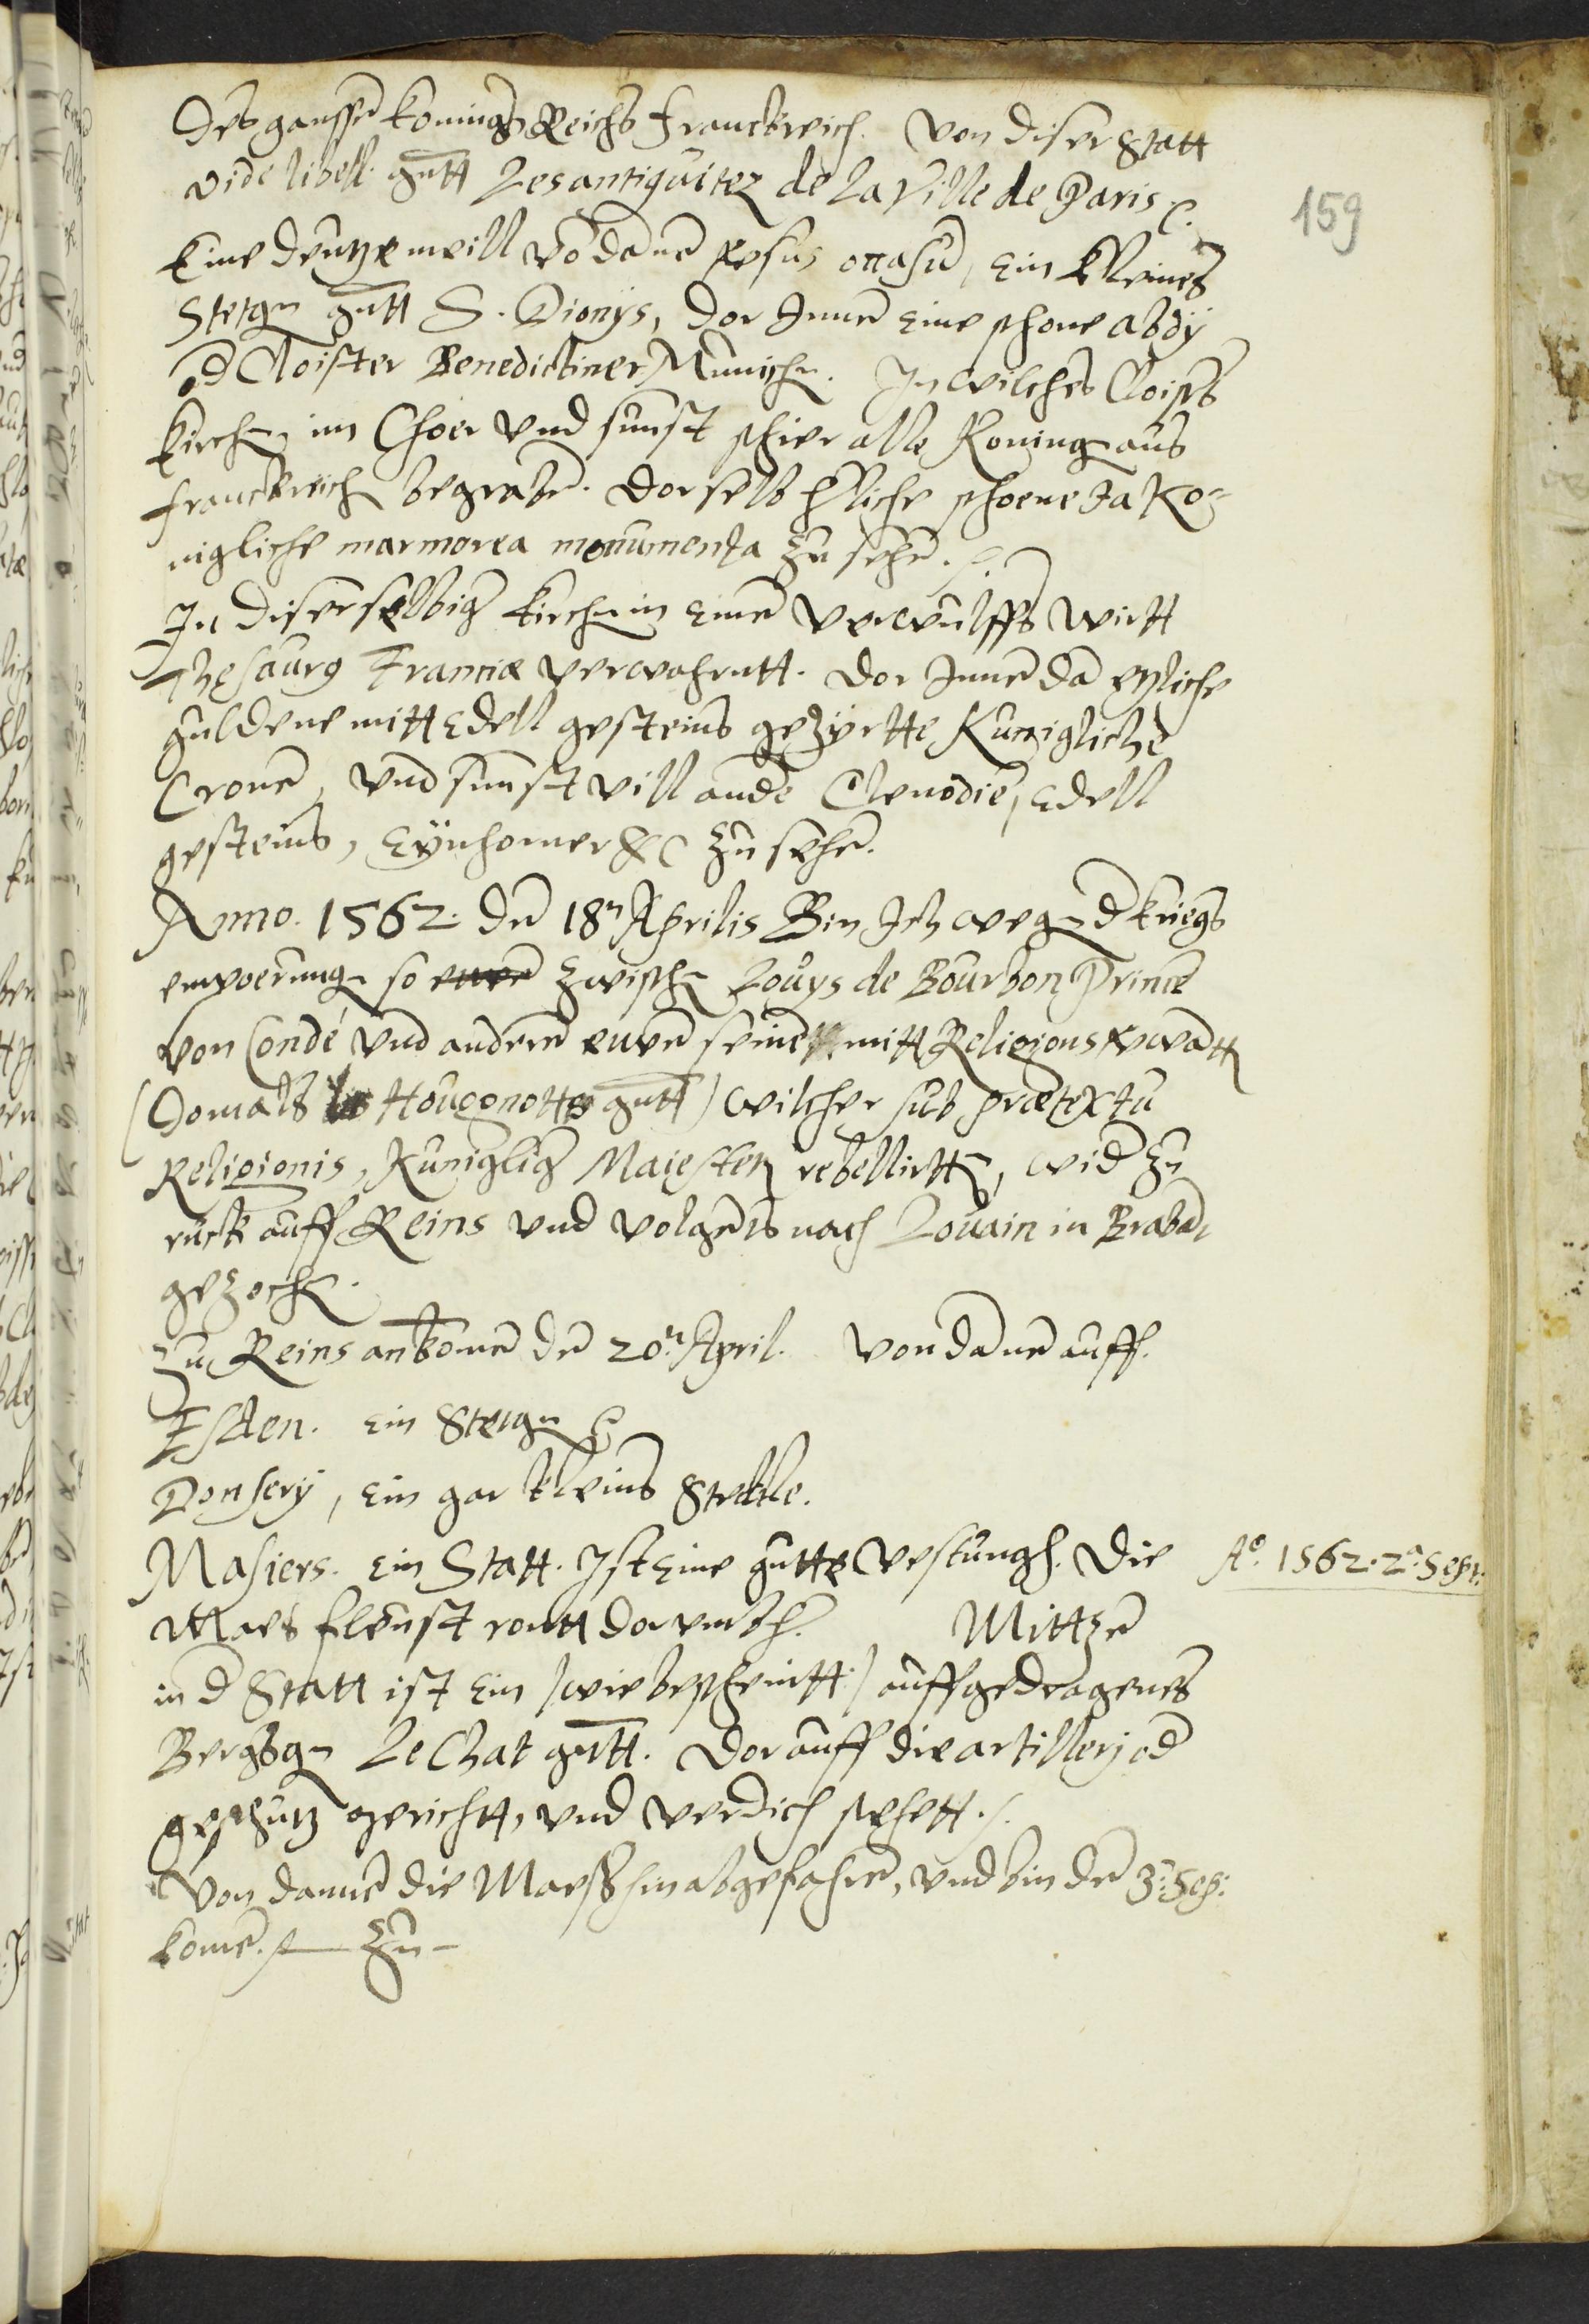 Des gantzē konings Reichs Franckreich. Von diser Statt
vide libell. gn̄tt Les antiquitez de La Ville de Paris.
Eine deutze meill vō danē versus occasū, ein kleines
Stetgn gn̄tt S. Dionÿs, dor Innē eine schone abdÿ
od Cloister Benedictiner Munnichn. In wilches Cloist̄s
Kirchn, im Choer und sunst schier alle Koning aus
franckreich begrabē. Dorselb etliche schoene Ja Ko-
nigliche marmorea monumenta zu sehē.
In diserselbig kirchn in einē verwulffs wirtt
Thesaurus Franciæ verwahrntt. Dor Innē dā etzliche
guldene mitt Edell gesteins gezÿrtte Kunigliche
Cronē, und sunst vill andē Clenodiē, Edell
gesteins, Eÿnhorner &c zu sehē.
Anno. 1562. dē 18n Aprilis Bin Ich wegn d kriegs
empoerung so zwischn Louys de Bourbon Prince
von Condé und anderē seinē mitt Religions vwādtt
(Domals Hougonottes gn̄tt) wilcher sub prætextu
Religionis, Kuniglig Maiestett rebellirttn, wid zu
ruck auff Reins und volgēts nach Louain in Brabād
gezochn.
Zu Reins ankomē dē 20n April. Von danē auff.
Esden. ein Stetgn
Donserÿ, ein gar kleins Stettle.
Masiers. ein Statt. Ist eine gutte vestungh. Die
Maes fleust rontt dorumbh. Mittzē
A°. 1562. 2ª. Sept:
in d Statt ist ein (wie bescheintt) auffgedragenes
Bergsgn Le Chat gn̄tt. Dor auff die artillerj od
geschutz gerichtt, und verdich stehett.
Von dannē die Maeß hinabgefahrē, und bin dē 3n. Sep:
komē. zu-
159